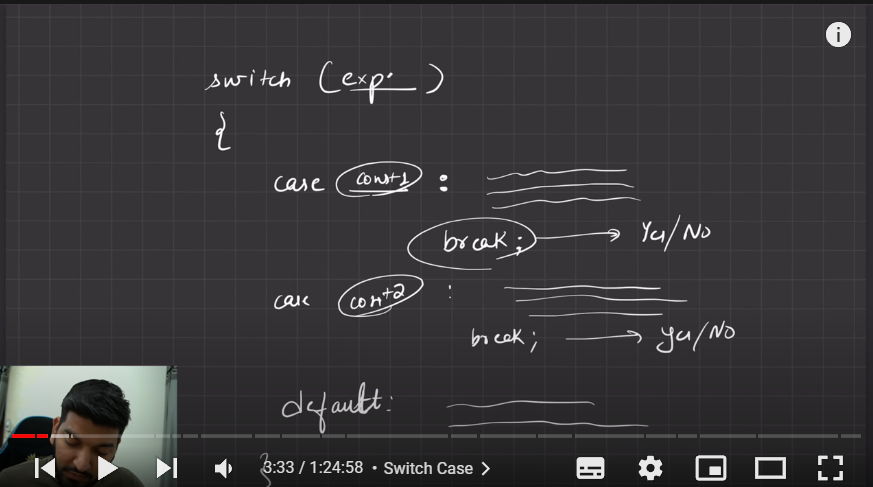 switch (exp.)
{
case const1 :
break; → Yes/No
case const2 :
break; → Yes/No
default:
}
3:33 / 1:24:58 • Switch Case